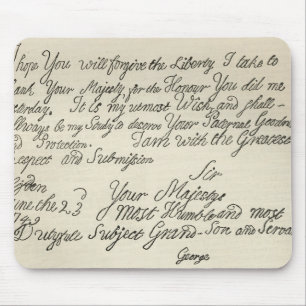 hope You will forgive the Liberty I take to
ank Your Majesty for the Honour You did me
erday. It is my utmost Wish, and shall
lways be my Study to deserve Your Paternal Goodn
nd Protection. I am with the Greatest
espect and Submission
Sir
ne the 23 Your Majestys
most Humble and most
Dutyfull Subject Grand-Son and Serva
George